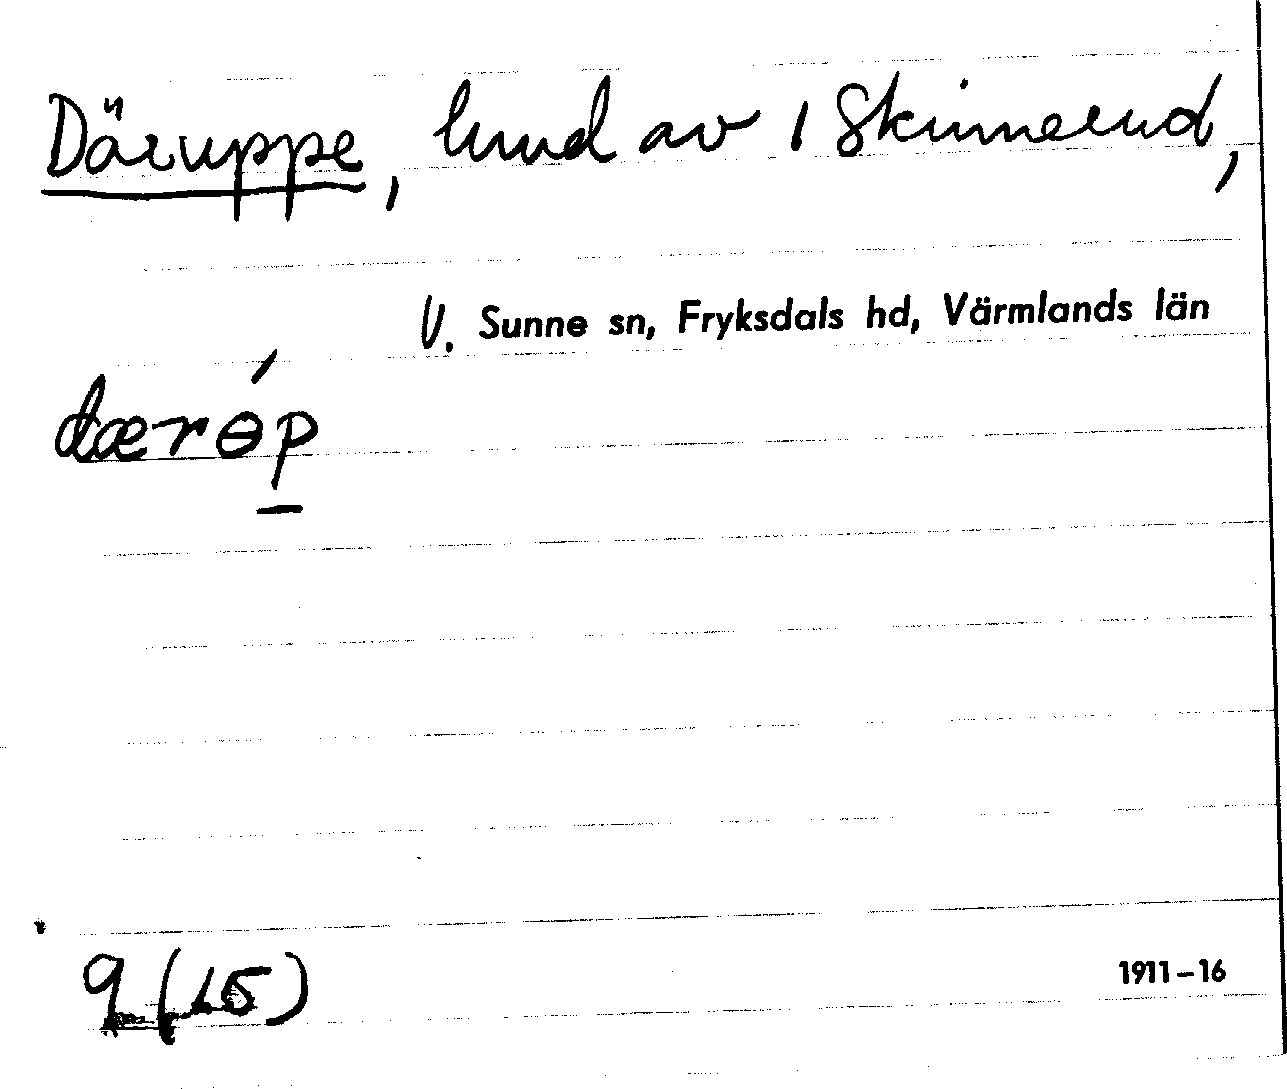 Däruppe, lund av 1 Skinnerud,
V. Sunne sn, Fryksdals hd, Värmlands län
dærɵ́p
9 (15)
1911–16